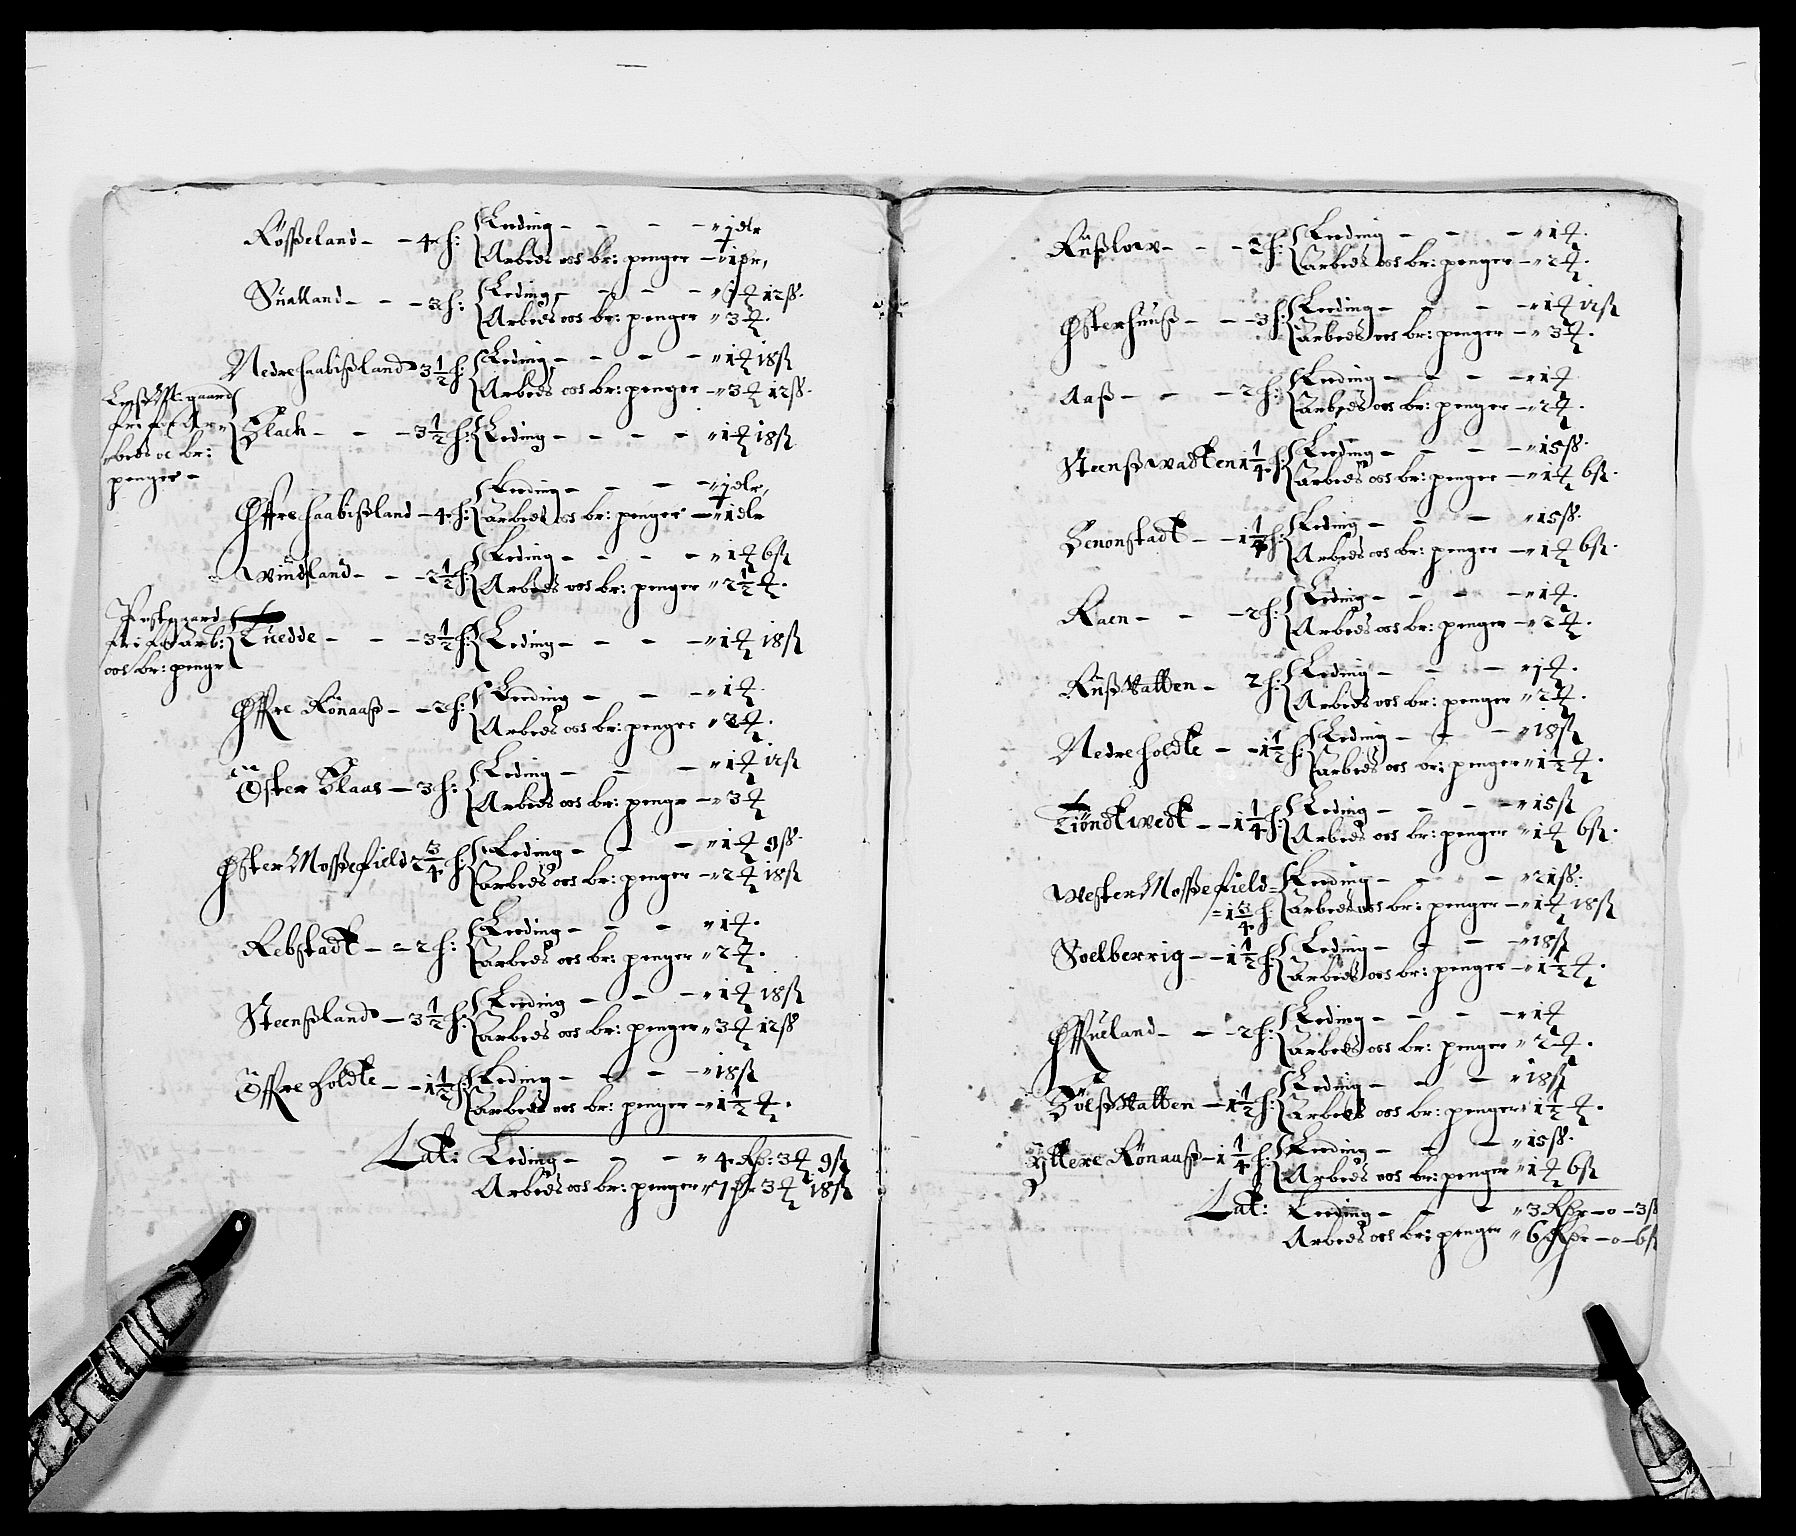 Rösseland - - 4 h: Leding - - - - " 1 dlr
Arbeds oos br: penger - "
Sualland - - - 3 h: Leding - - - - " 1 ₰ 12 ss.
Arbeds oos br: penger " 3 ₰.
Nedrehaabissland 3½ h: Leding - - - - " 1 ₰ 18 ß
Arbeds oos br: penger - " 3 ₰ 12 ss.
gaard
fri for Ar-
beds oc br:
penger -
Blach - - - 3½ h: Leding - - - - " 1 ₰ 18 ß
Øffrehaabissland - 4 h: Leding - - - " 1 dlr,
Arbeds oos br: penger - " 1 dlr
Windsland - - - 2½ h: Leding - - - - " 1 ₰ 6 ß
Arbeds oos br: penger " 2½ ₰.
Prestgaard
fri for Arb:
oos br: pengr
Tuedde - - - 3½ h: Leding - - - - " 1 ₰ 18 ß
Øffre Rönaass - - 2 h: Leding - - - " 1 ₰
Arbeds oos br: penger " 2 ₰.
Öster Blaas - 3 h: Leding - - - " 1 ₰ 12 ß
Arbeds oos br: pengr - " 3 ₰
Øster Mossefield 2¾ h: Leding - - - " 1 ₰ 9 ss.
Arbeds oos br: penger - " 2 ₰ 18 ß
Rebstadt - = 2 h: Leding - - - " 1 ₰.
Arbeds oos br: penger " 2 ₰.
Steenssland - 3½ h: Leding - - - " 1 ₰ 18 ß
Arbeds oos br: penger " 3 ₰ 12 ss
Öffre holdte - - 1½ h: Leding - - - " 18 ß
Arbeds oos br: penger - " 1½ ₰.
Lat: Leding - - - " 4 Rdr: 3 ₰ 9 ß
Arbeds oos br: penger " 7 dr 3 ₰ 18 ß
- - - 2 h: Leding - - - " 1 ₰.
Arbeds oos br: penger - " 2 ₰.
Østerhuuss - - - 3 h: Leding - - - " 1 ₰ 12 ß
Arbeds oos br: penger - " 3 ₰.
Aass - - - 2 h: Leding - - - " 1 ₰
Arbeds oos br: penger - " 2 ₰.
Steensswadten 1¼ h: Leding - - - " 15 ss.
Arbeds oos br: penger - " 1 ₰ 6 ß.
Benonstadt - - 1¼ h: Leding - - - " 15 ss.
Arbeds oos br: penger - " 1 ₰ 6 ß.
Raen - - - 2 h: Leding - - - - " 1 ₰.
Arbeds oos br: penger - " 2 ₰.
Russvatten - 2 h: Leding - - - " 1 ₰.
Arbeds oos br: penger " 2 ₰.
Nedre holdte - - 1½ h: Leding - - - " 18 ß
Arbeds oos br: penger " 1½ ₰.
Tiöndtwedt - - 1¼ h: Leding - - - - " 15 ß
Arbeds oos br: penger " 1 ₰ 6 ß.
Wester Mossefield = Leding - - - " 21 ss.
= 1¾ h: Arbeds oos br: penger - " 1 ₰ 18 ß
Soelberrig - - 1½ h: Leding - - - " 18 ß
Arbeds oos br: penger - " 1½ ₰.
Øffueland - - - 2 h: Leding - - - - " 1 ₰
Arbeds oos br: penger " 2 ₰.
Bölssvatten - 1½ h: Leding - - - " 18 ß
Arbeds oos br: penger " 1½ ₰.
Yttere Rönaass - 1¼ h: Leding - - - " 15 ss.
Arbeds oos br: penger " 1 ₰ 6 ß
Lat: Leding - - - " 3 Rdr - 0 - 3 ß
Arbeds oos br: penger " 6 Rdr - 0 - 6 ß